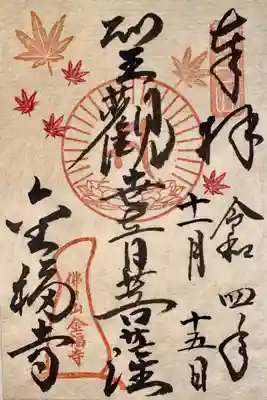 奉拝
令和四年
十一月十五日
聖觀世音菩薩
金福寺
佛日山
金福寺